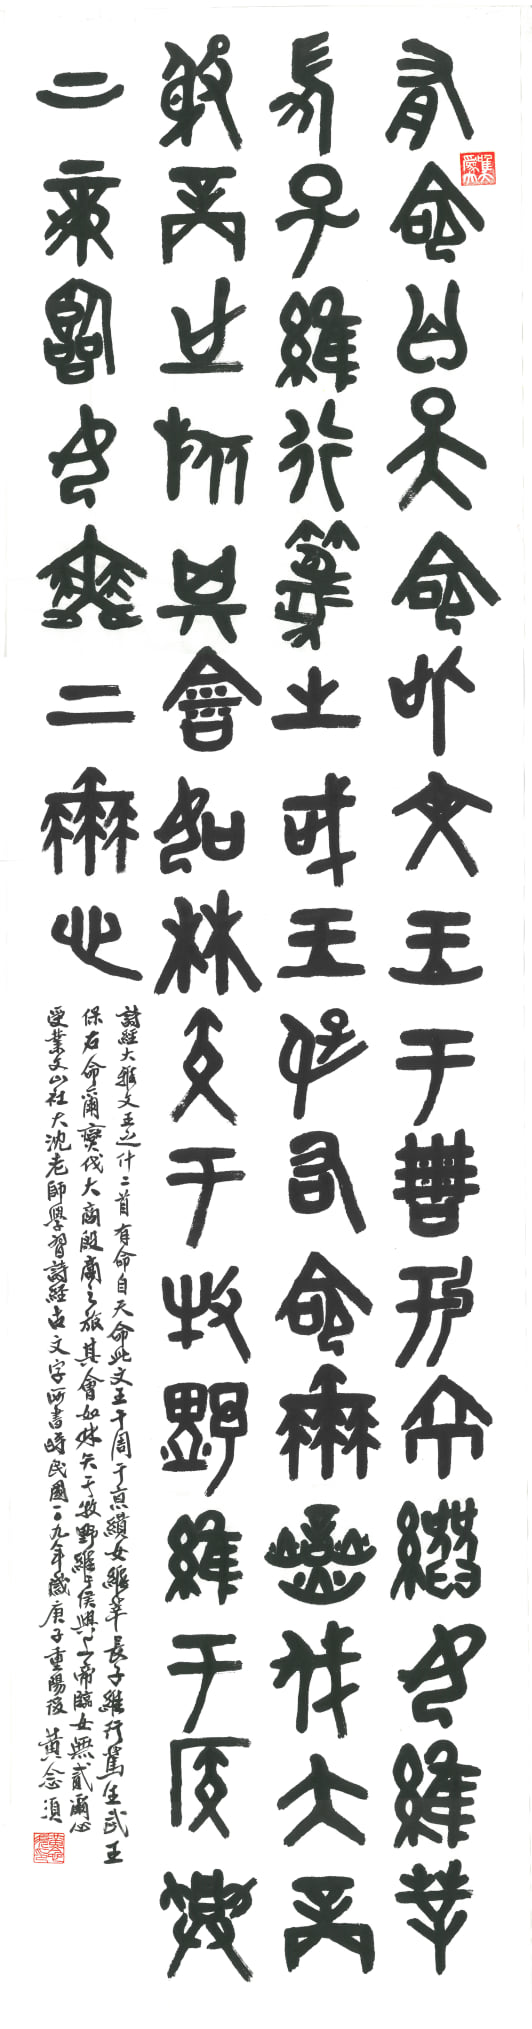 有命自天命此文王于周于京纘女維莘
長子維行篤生武王保右命爾燮伐大商
殷商之旅其會如林矢于牧野維于侯興
上帝臨女無貳爾心
詩經大雅文王之什二首有命自天命此文王于周于京纘女維莘長子維行篤生武王
保右命爾燮伐大商殷商之旅其會如林矢于牧野維于侯興上帝臨女無貳爾心
受業文山社大沈老師學習詩經古文字所書時民國一〇九年歲庚子重陽後 黃念須